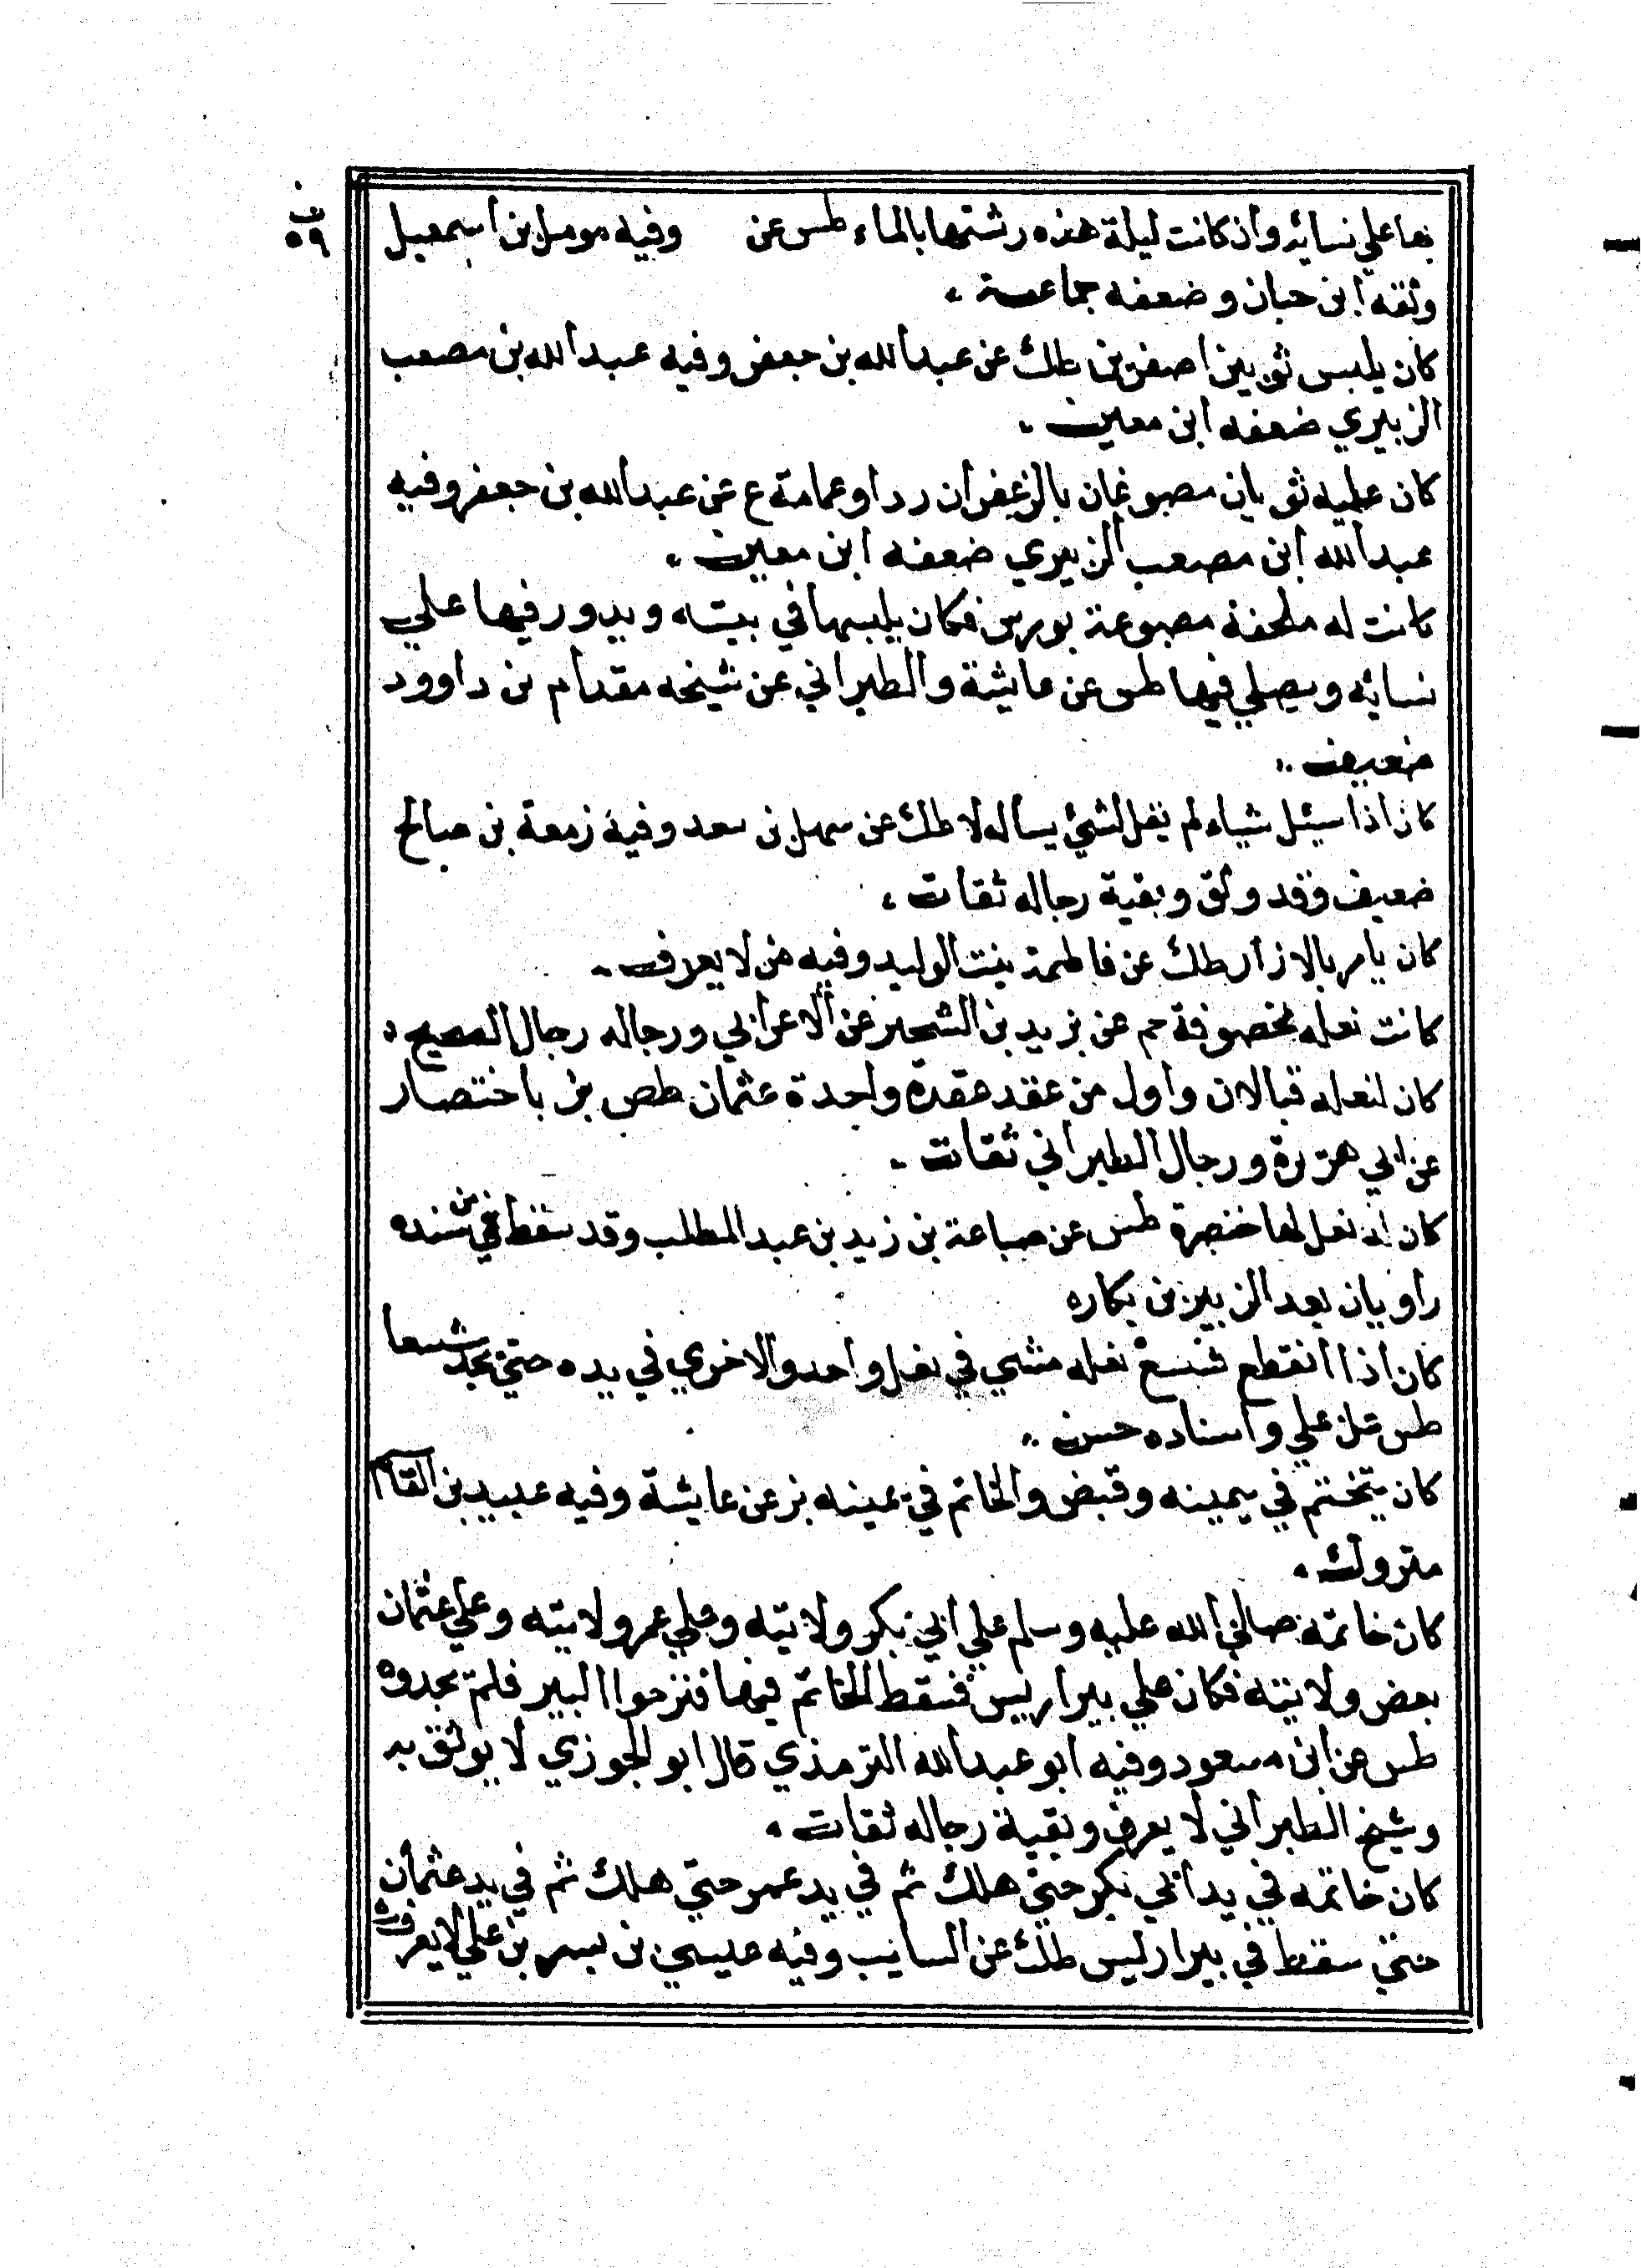 ف
٥٩
بها علي نسائه وأن كانت ليلة هذه رشتها بالماء طس عن وفيه مومل بن اسمعيل
وثقه ابن حبان وضعفه جماعة
كان يلبس ثوبين اصفرين طك عن عبد الله بن جعفر وفيه عبد الله بن مصعب
الزبيري ضعفه ابن معين
كان عليه ثوبان مصبوغان بالزعفران ردا وعمامة ع عن عبد الله بن جعفر وفيه
عبد الله ابن مصعب الزبيري ضعفه ابن معين
كانت له ملحفة مصبوغة بورس فكان يلبسها في بيته ويدور فيها علي
نسائه ويصلي فيها طس عن عايشة والطبراني عن شيخه مقدام بن داوود
ضعيف
كان اذا سيئل شياء لم يقل لشئ يساله لا طك عن سهل بن سعد وفيه زمعة بن صالح
ضعيف وقد وثق وبقية رجاله ثقات
كان يامر بالازار طك عن فاطمة بنت الوليد وفيه من لا يعرف
كانت نعله مخصوفة حم عن يزيد بن الشخير عن الاعرابي ورجاله رجال الصحيح
كان لنعله قبالان واول من عقد عقدة واحدة عثمان طص بز باختصار
عن ابي هريرة ورجال الطبراني ثقات
كان له نعل لها خنصرة طس عن صباعة بن زيد بن عبد المطلب وقد سقط من سنده
راويان بعد الزبير بن بكاره
كان اذا انقطع شسع نعله مشي في نعل واحد والاخري في يده حتي يجد شسعا
طس عن علي واسناده حسن
كان يتختم في يمينه وقبض والخاتم في يمينه بز عن عايشة وفيه عبيد بن القاسم
متروك
كان خاتمه صلي الله عليه وسلم علي ابي بكر ولايته وعلي عمر ولايته وعلي عثمان
بعض ولايته فكان علي بير اريس فسقط الخاتم فيها فنزحوا البير فلم يجدوه
طس عن ابن مسعود وفيه ابو عبد الله الترمذي قال ابو الجوزي لا يوثق به
وشيخ الطبراني لا يعرف وبقية رجاله ثقات
كان خاتمه في يد ابي بكر حتي هلك ثم في يد عمر حتي هلك ثم في يد عثمان
حتي سقط في بير اريس طك عن السايب وفيه عيسي بن بسر بن علي لا يعرف